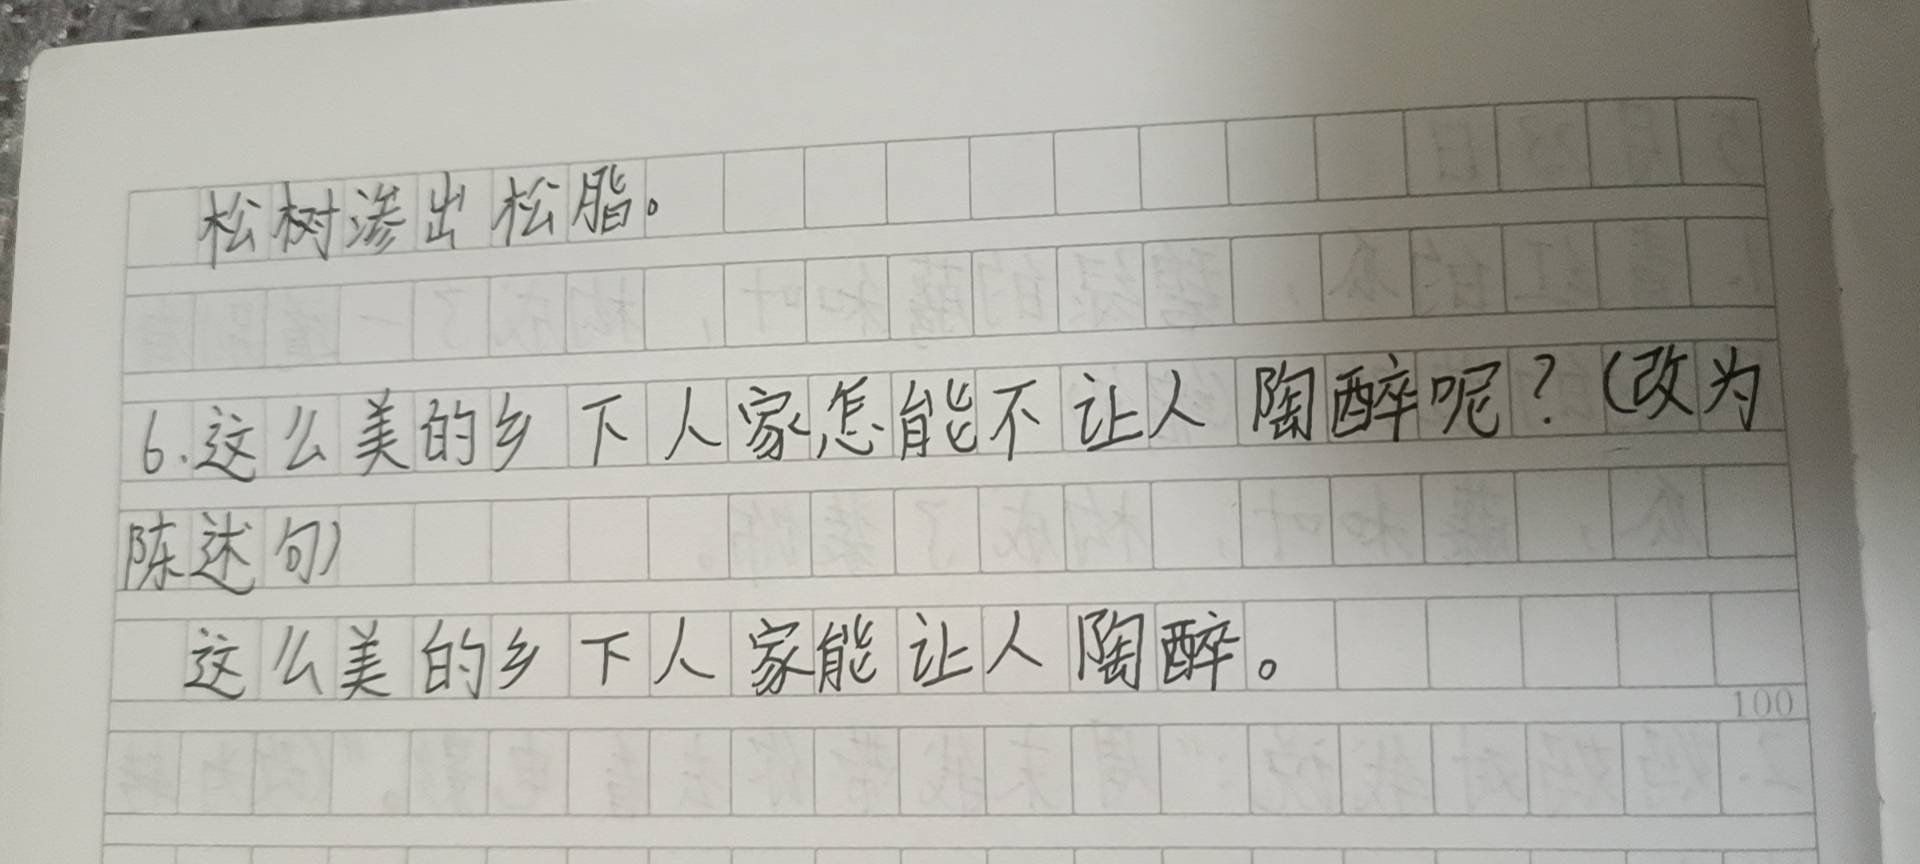 松树渗出松脂。
6.这么美的乡下人家怎能不让人陶醉呢？（改为
陈述句）
这么美的乡下人家能让人陶醉。
100